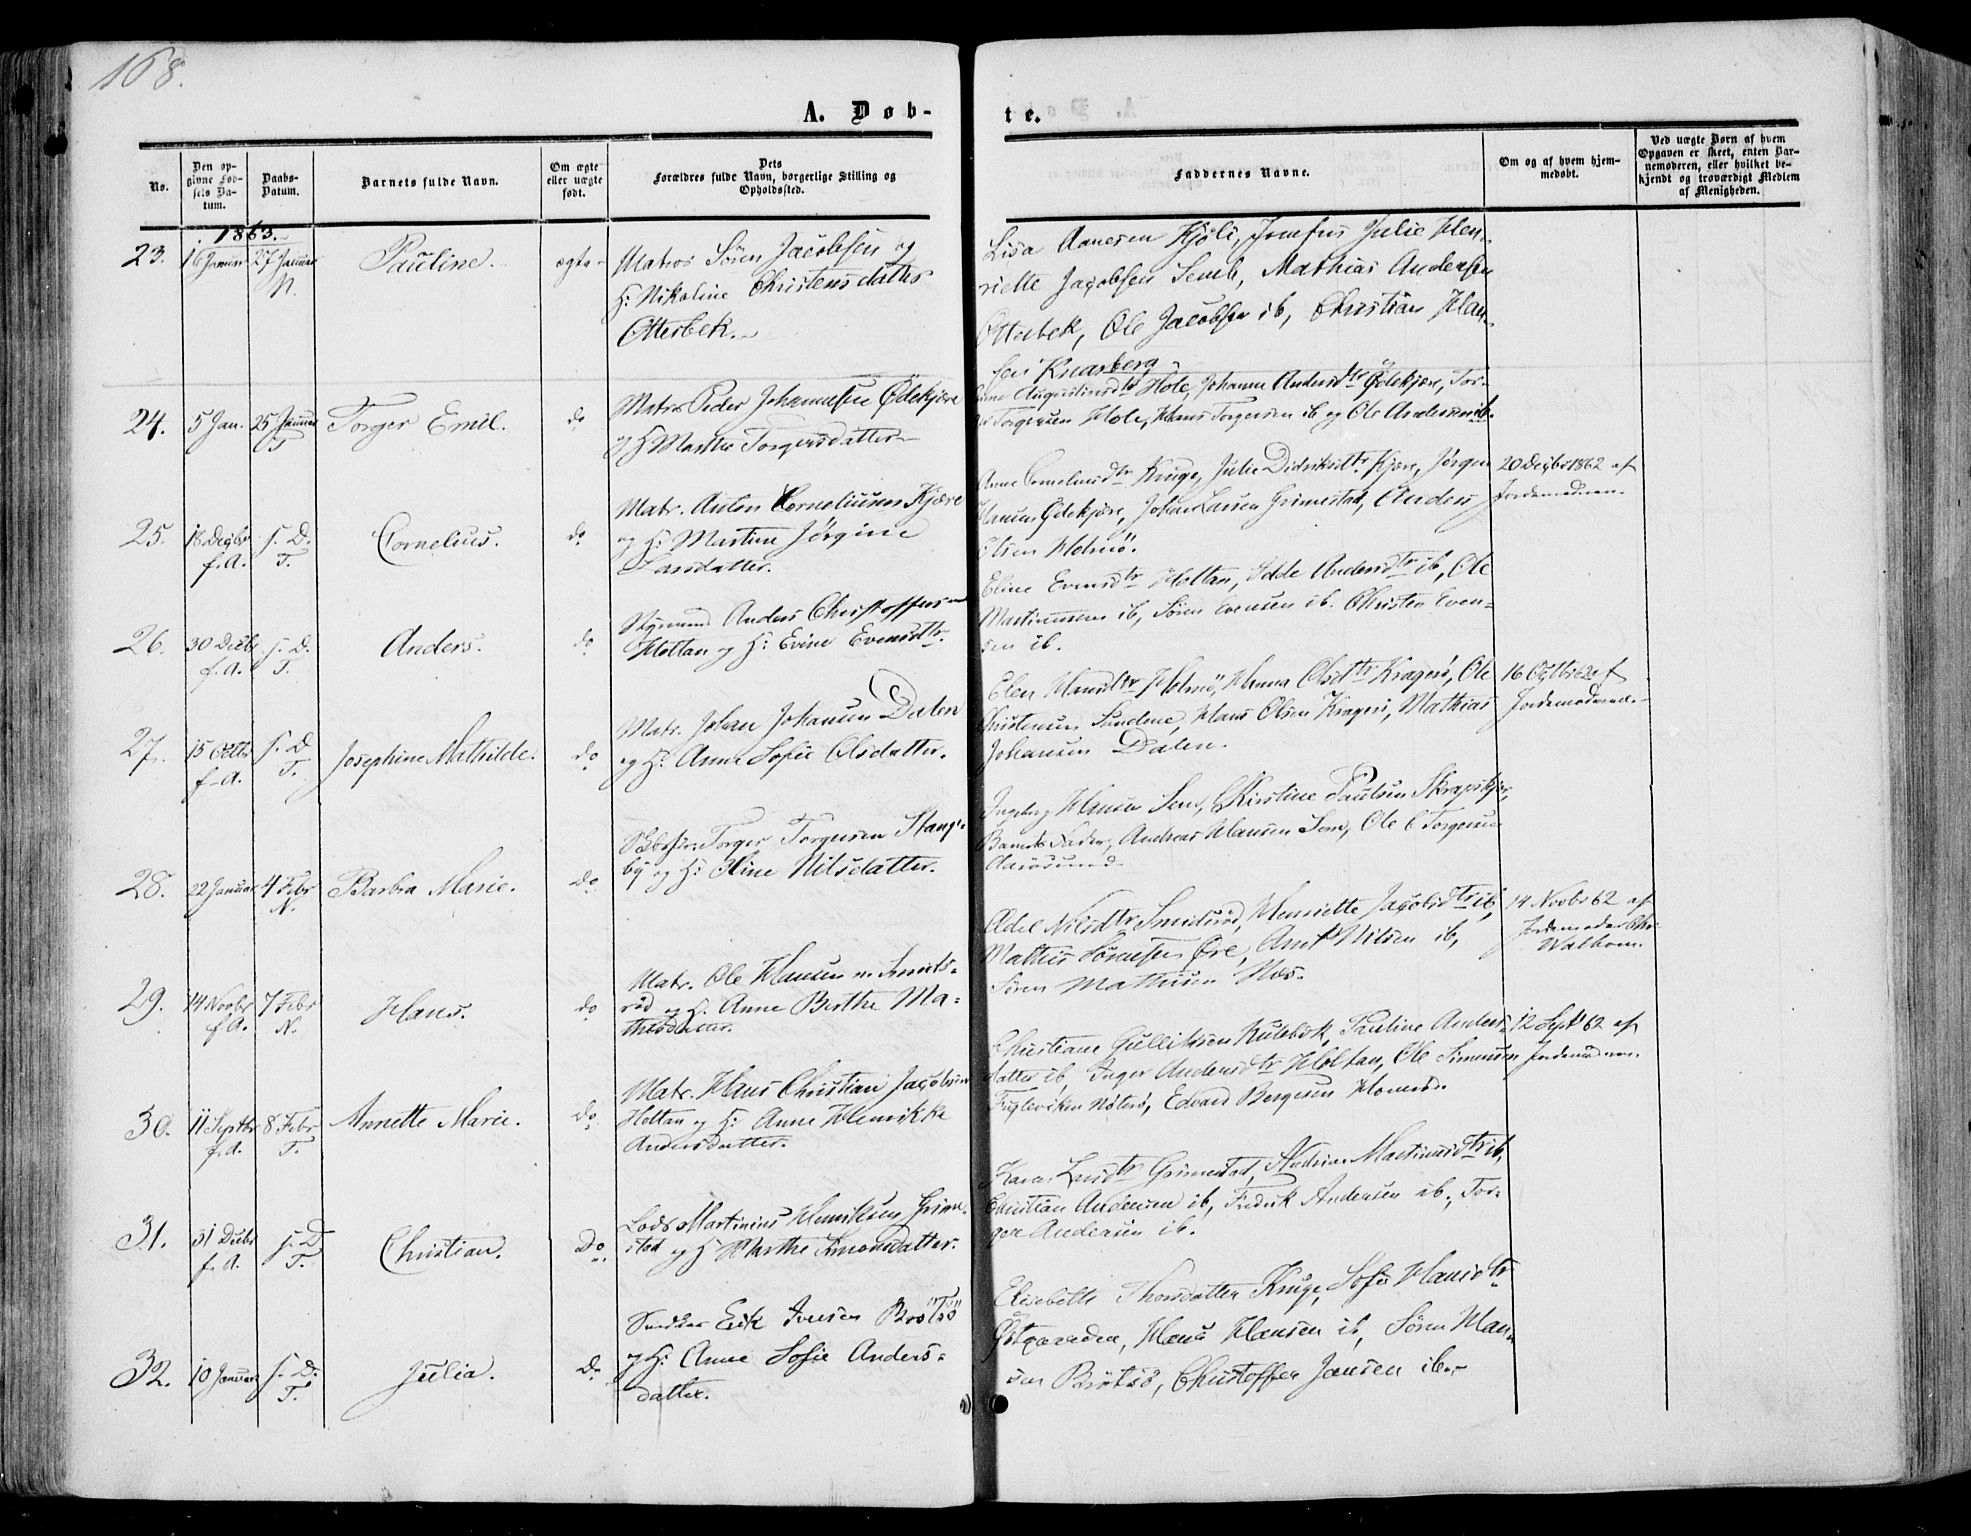 168.
A. Døb-
te.
No.
Den op-
givne Fød-
sels Da-
tum.
Daabs-
Datum.
Barnets fulde Navn.
Om ægte
eller uægte
født.
Dets
Forældres fulde Navn, borgerlige Stilling og
Opholdssted.
Faddernes Navne.
Om og af hvem hjem-
medøbt.
Ved uægte Børn af hvem
Opgaven er skeet, enten Bar-
nemoderen, eller hvilket be-
kjendt og troværdigt Medlem
af Menigheden.
1863.
23. 16 Januar 27 Januar
N.
Pauline.
ægte
Matros Sören Jacobsen og
H: Nikoline Christensdatter
Otterbek.
Lisa Kjöle, Jomfru Julie Hen-
riette Jacobsen Semb, Mathias Andersen
Otterbek, Ole Jacobsen ib, Christian Han-
sen Knarberg
24. 5 Jan. 25 Januar
T
Torger Emil.
do
Matr. Peder Johannesen Ødekjære
og H Marthe Torgersdatter
Augustinusdtr Hole, Johanne Andersdtr Ødekjære, Tor-
Torgersen Hole, Hans Torgersen ib og Ole Andersen ib.
25. 18 Decbr
f. A.
s. D.
T.
Cornelius.
do
Matr. Anton Corneliussen Kjære
og H: Martine Jørgine
Larsdatter.
Anne Corneliusdtr Kruge, Julie Didriksdtr Kjære, Jørgen
Hansen Ødekjære, Johan Larsen Grimestad, Anders
Olsen Holmö.
20 Decbr 1862 af
Jordemoderen.
26. 30 Decbr
f. A.
s. D.
T.
Anders.
do
Anders Christoffersen
Holtan og H: Evine Evensdtr.
Eline Evensdtr Holtan, Andersdtr ib, Ole
Martinussen ib, Sören Evensen ib. Christen Even-
sen ib.
27. 15 Octbr
f. A.
s. D
T.
Josephine Mathilde.
do
Matr. Johan Johansen Dalen
og H: Anne Sofie Olsdatter.
Elen Hansdtr Holmö, Hanna Olsdtr Kragerö, Ole
Christensen Sundene, Hans Olsen Kragerö, Mathias
Johansen Dalen.
16 Octbr 62 af
Jordemoderen.
28. 22 Januar 4 Febr
N.
Barbra Marie.
do
Torger Torgersen Stange-
by og H: Nilsdatter.
Ingeborg Hansen Sem, Kirstine Paulsen
Barnets Fader, Andreas Hansen Sem, Ole C Torgersen
29. 14 Novbr
f. A.
7 Febr
N.
Hans.
do
Matr. Ole Hansen Smids-
röd og H. Anne Berthe Ma-
theadatter.
Edel Nilsdtr Smidsröd, Henriette Jacobsdtr ib,
Mathis Sörensen Øre, Nilsen ib,
Sören Mathisen Næs.
14 Novbr 62 af
Jordemoder Chr
Walbom.
30. 11 Septbr
f. A.
8 Febr
T.
Annette Marie.
do
Matr. Hans Christian Jacobsen
Holtan og H: Anne Henrikke
Andersdatter.
Christiane Gulliksen Rulebok, Pauline Anders-
datter ib, Inger Andersdtr Holtan, Ole Simensen
Fugleviken Nöterö, Edvard Borgesen
12 Sept 62 af
Jordemoderen.
31. 31 Decbr
f. A.
s. D
T.
Christian.
Do
Lods Martinius Henriksen Grime-
stad og H Marthe Simonsdatter.
Karen Larsdtr Grimestad, Andrine Martinusdtr ib,
Christian Andersen ib, Fredrik Andersen ib, Tor-
ger Andersen ib.
32. 10 Januar
s. D.
T.
Julia.
Do
Erik Iversen Brötsö
og H: Anne Sofie Anders-
datter.
Elisabeth Thorsdatter Kruge, Sofie Hansdtr
Östgaarden, Hans Hansen ib, Sören Han-
sen Brötsö, Christoffer Jansen ib.